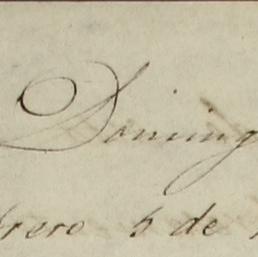 Doming
brero 5 de